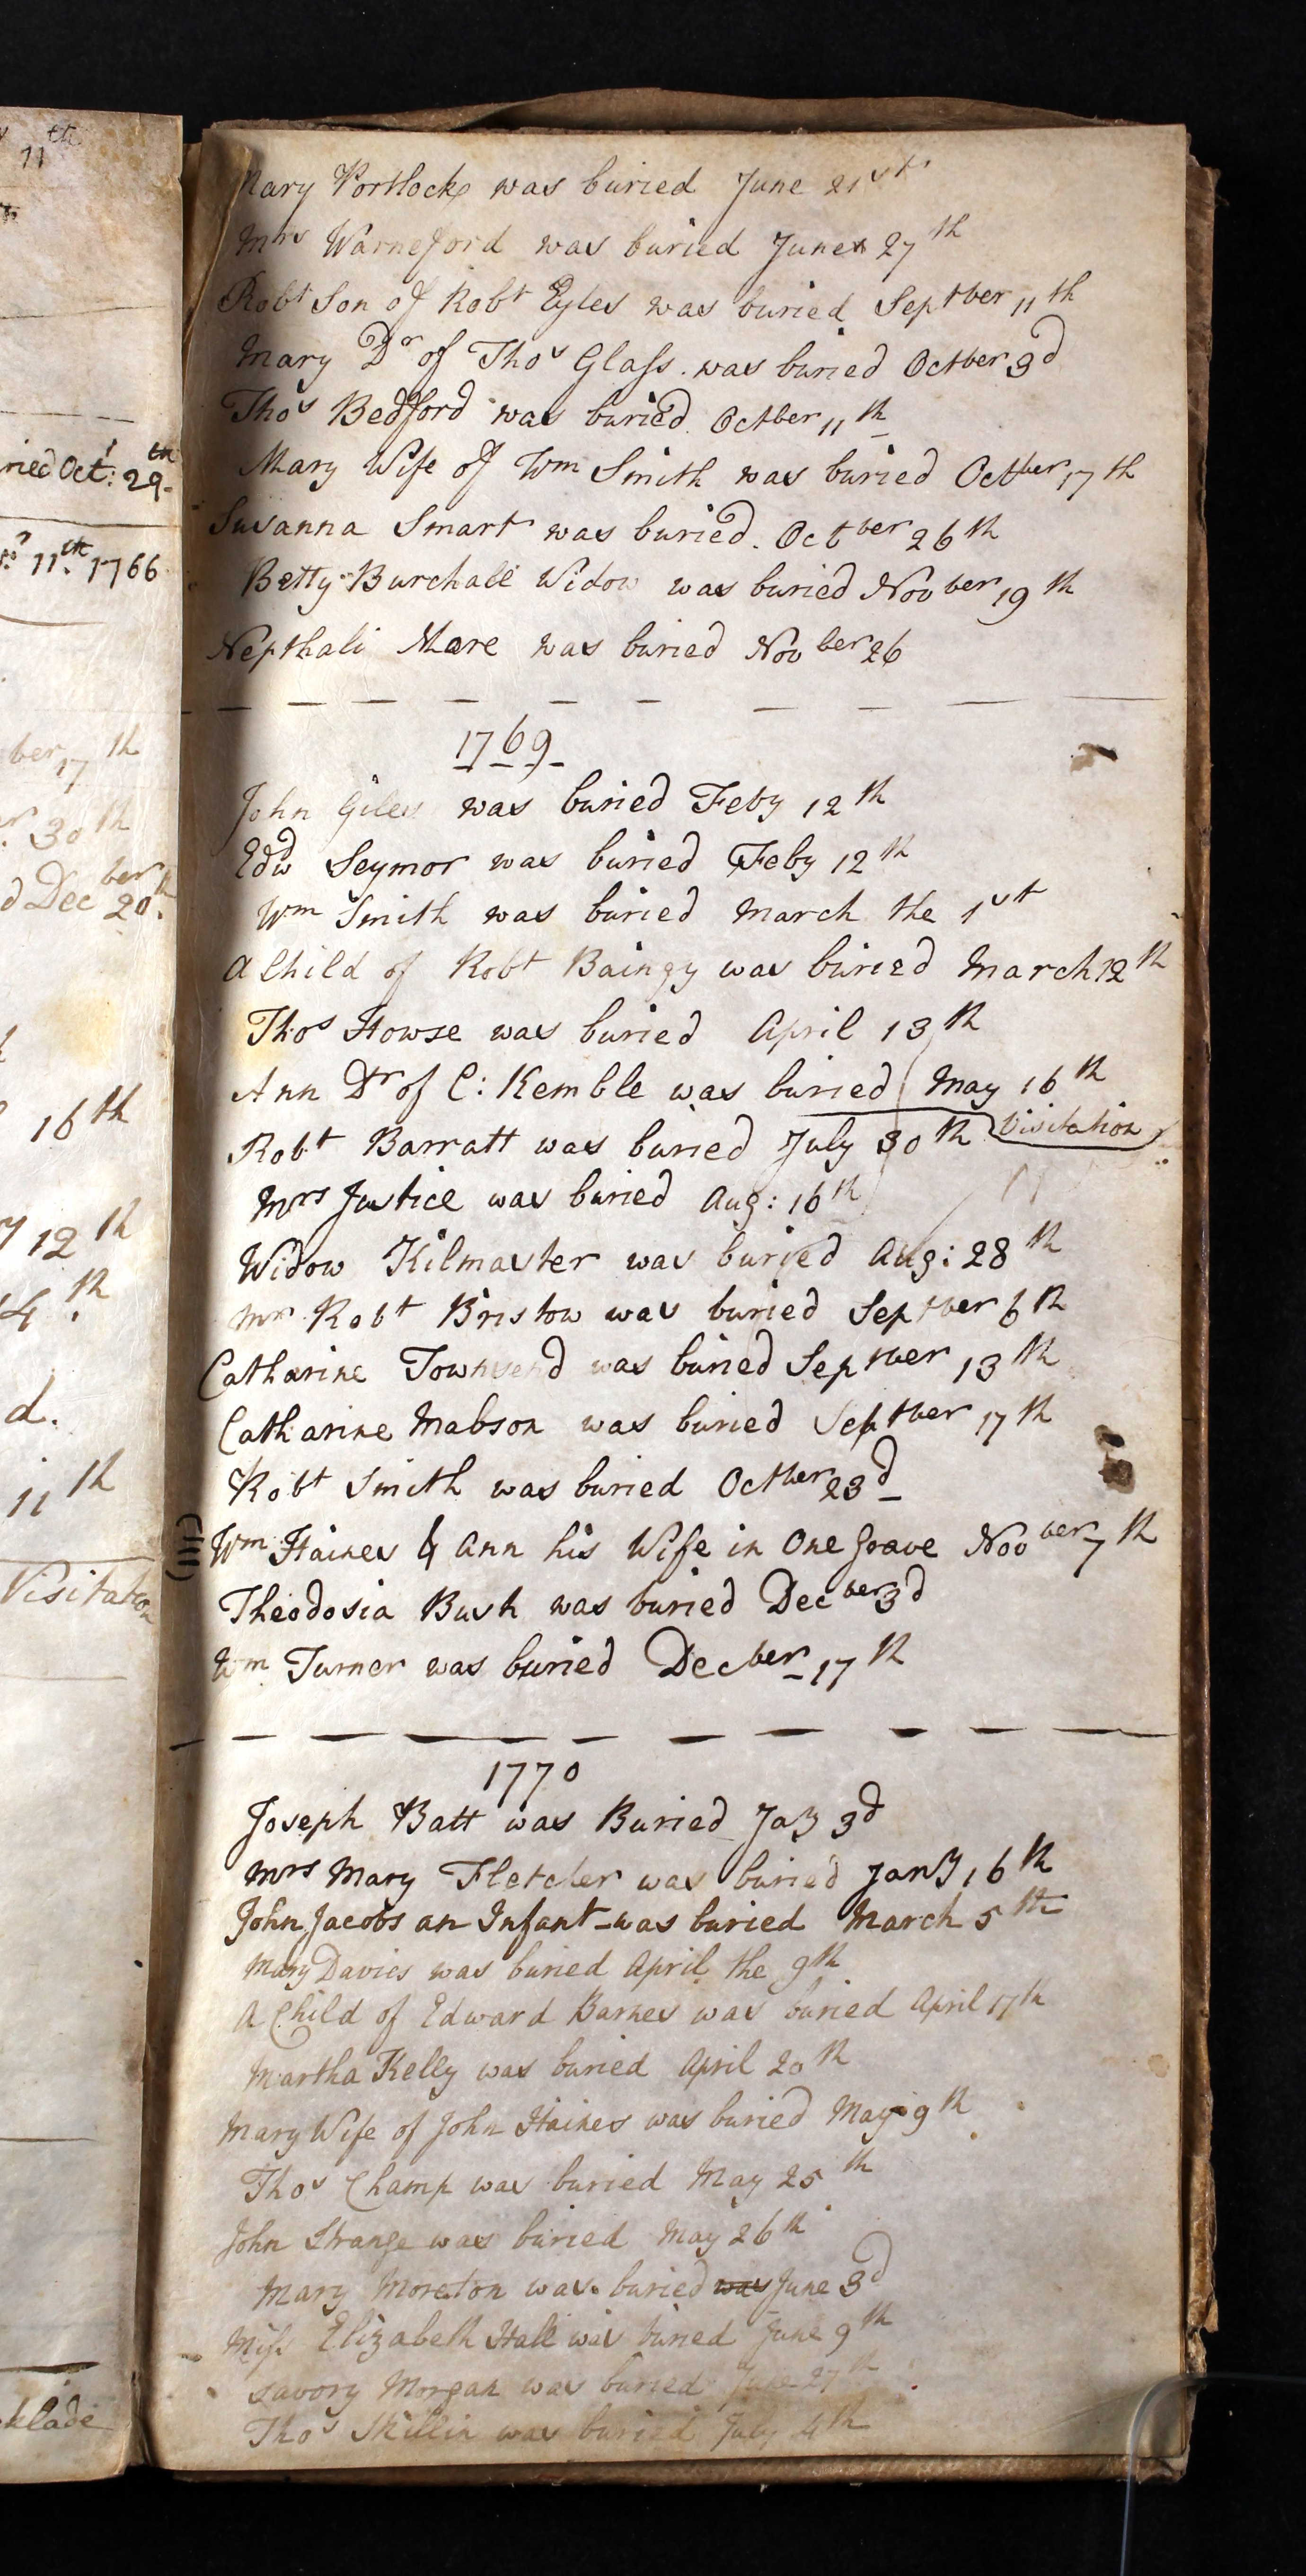 11th
ried Oct: 29th
11th 1766
ber 17th
30th
d Decber 20th
16th
12th
4th
d.
11th
Visitation
klade
Mary Portlock was buried June 21st
Mrs Warneford was buried June 27th
Robt Son of Robt Eyles was buried Septber 11th
Mary Dr of Thos Glass was buried Octber 3d
Thos Bedford was buried Octber 11th
Mary Wife of Wm Smith was buried Octber 17th
Susanna Smart was buried Octber 26th
Betty Burchall Widow was buried Novber 19th
Nepthali Mare was buried Novber 26
1769
John Giles was buried Feby 12th
Edwd Seymor was buried Feby 12th
Wm Smith was buried March the 1st
A Child of Robt was buried March 12th
Thos Howse was buried April 13th
Ann Dr of C: Kemble was buried May 16th
Robt Barratt was buried July 30th Visitation
Mrs Justice was buried Aug: 16th
Widow Kilmaster was buried Aug: 28th
Mr Robt Bristow was buried Septber 6th
Catharine Townsend was buried Septber 13th
Catharine Mabson was buried Septber 17th
Robt Smith was buried Octber 23d
Wm Haines & Ann his Wife in One Grave Novber 7th
Theodosia Bush was buried Decber 3d
Wm Turner was buried Decber 17th
1770
Joseph Batt was Buried Jay 3d
Mrs Mary Fletcher was buried Jany 16th
John Jacobs an Infant was buried March 5th
Mary Davies was buried April the 9th
A Child of Edward Barnes was buried April 17th
Martha Kelly was buried April 20th
Mary Wife of John Haines was buried May 9th
Thos Champ was buried May 25th
John Strange was buried May 26th
Mary Moreton was buried was June 3d
Miss Elizabeth Hall was buried June 9th
Savory Morgan was buried June 27th
Thos Skillin was buried July 4th